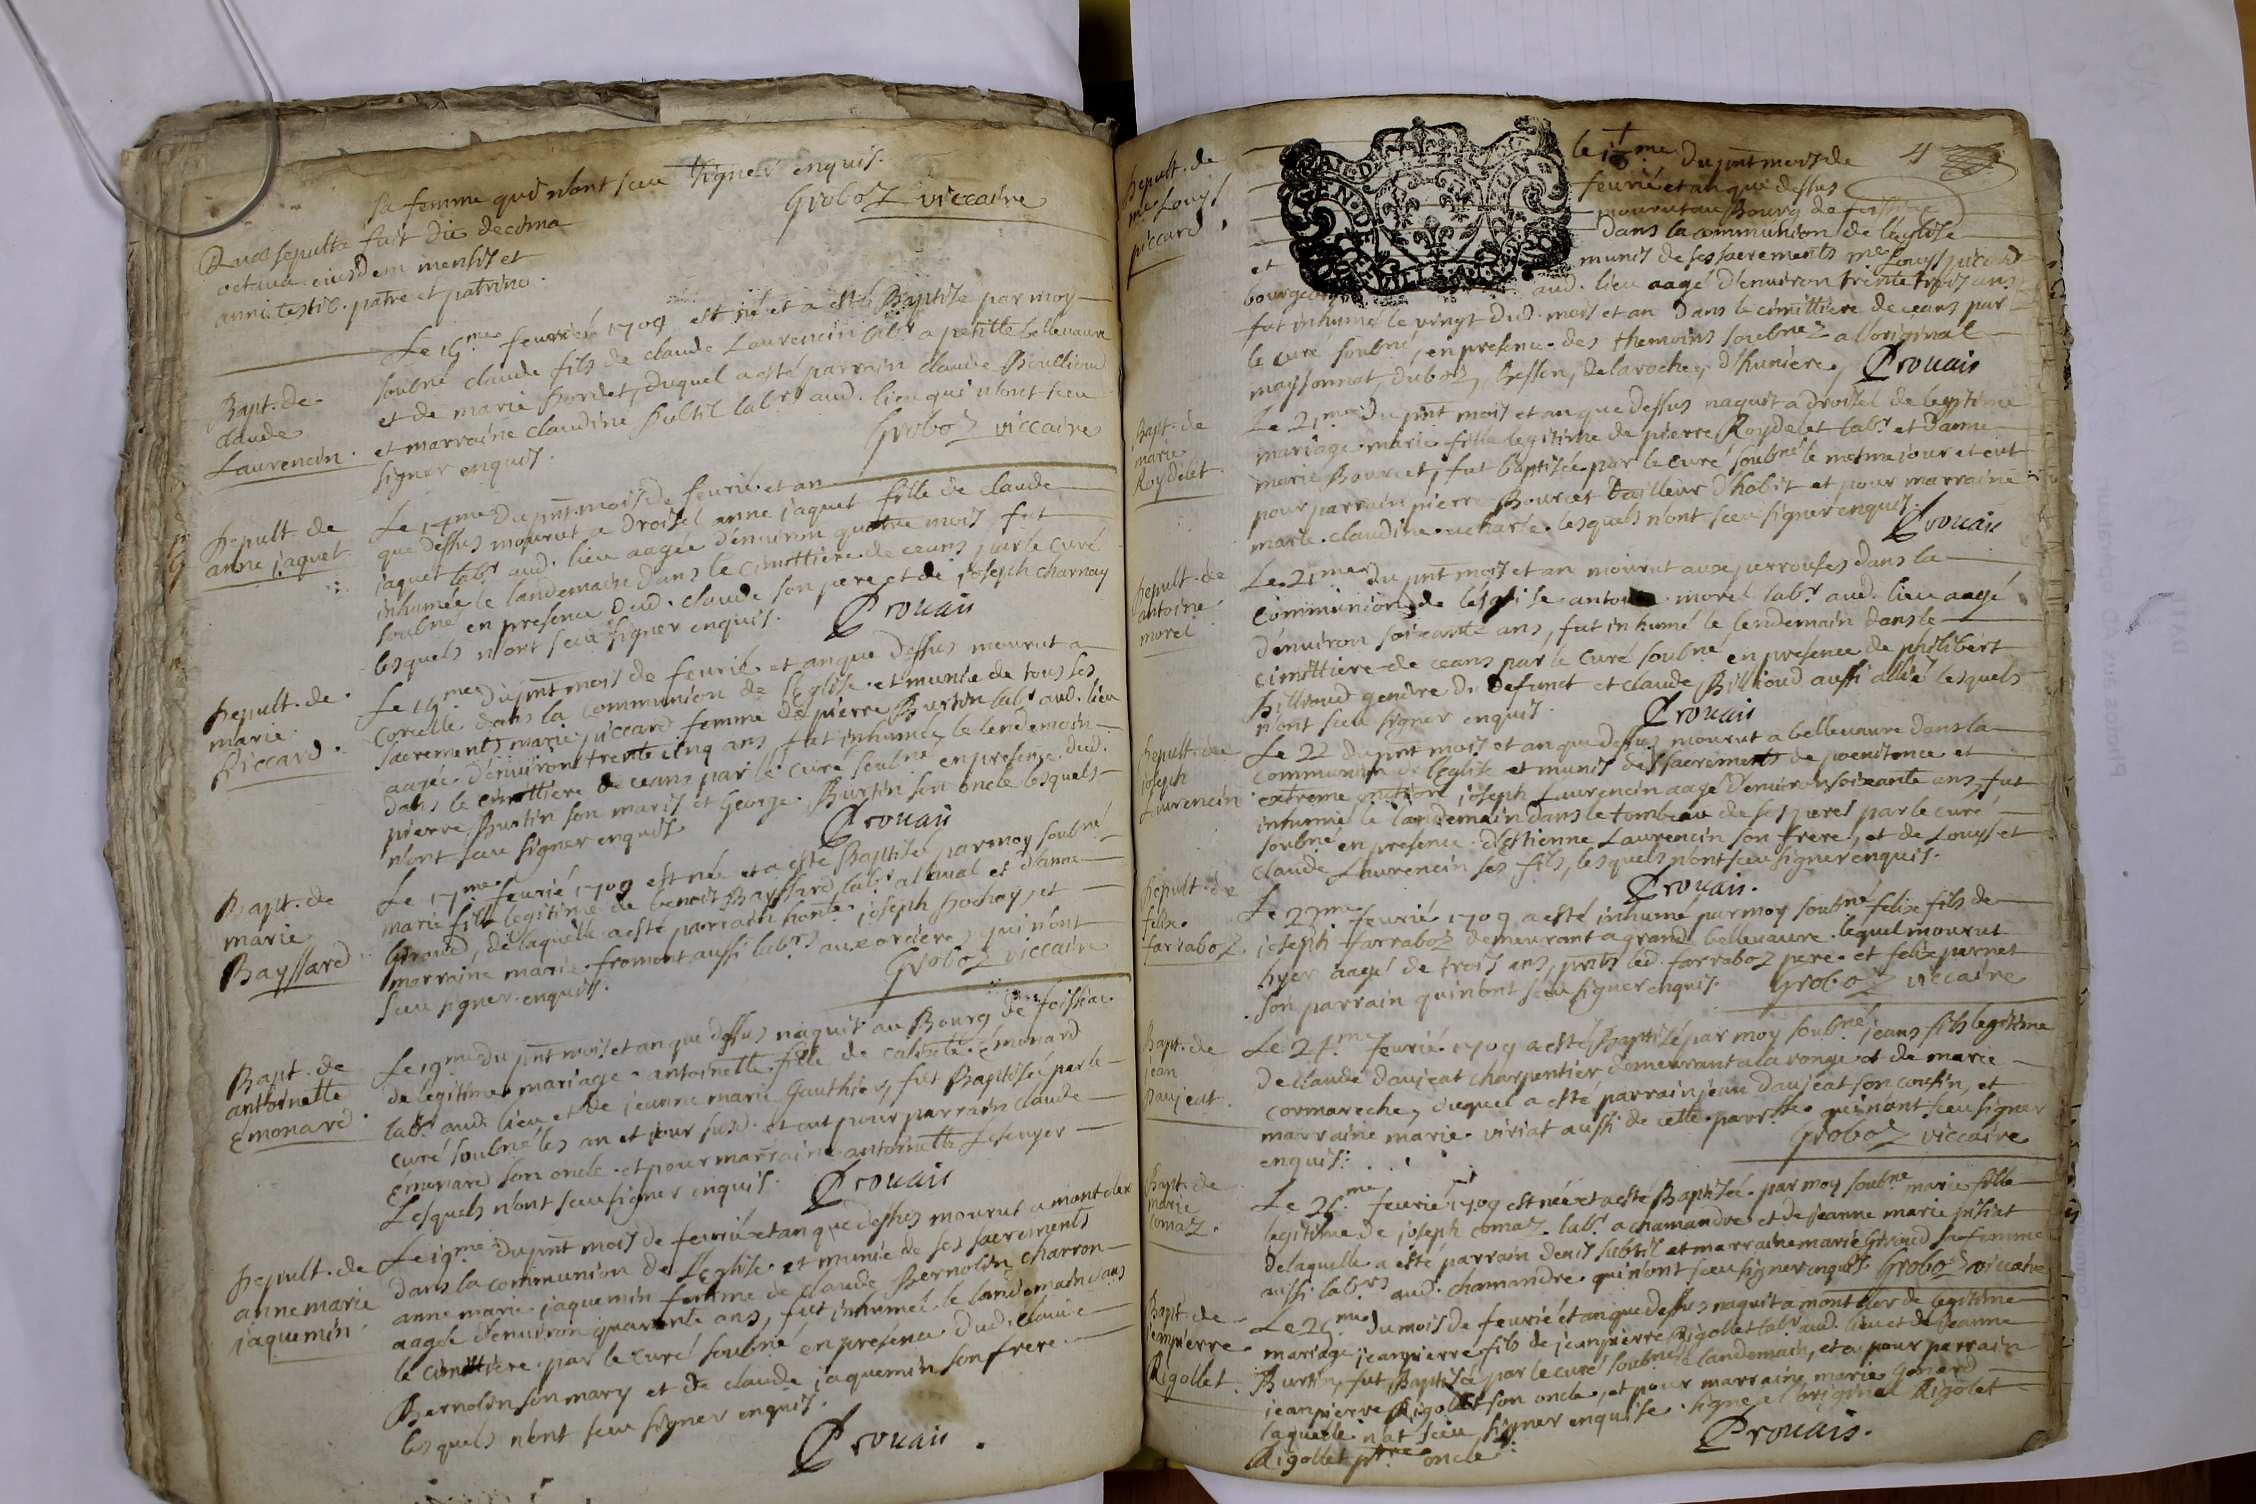 sa femme qui n'ont sceu signer enquis.
Groboz viccaire
Quae sepulta fuit die decima
octava eiusdem mensis et
anni testib. patre et patrino.
Bapt. de
claude
Laurencin.
Le 16me feurié 1709 est né et a esté Baptisé par moy
soubné claude fils de claude Laurencin labr a petitte bellevaure
et de marie hordet, duquel a esté parrain claude Boullioud
et marraine claudine subtil labrs aud. lieu qui n'ont sceu
signer enquis.
Groboz viccaire
sepult. de
anne jaquet
Le 14me du pnt mois de feurié et an
que dessus mourut a Droisel anne jaquet fille de claude
jaquet labr aud. lieu aagée d'enuiron quatre mois, fut
inhumée le landemain dans le cimittiere de ceans par le curé
soubné en presence dud. claude son pere et de joseph charnay
lesquels n'ont sceu signer enquis.
Crouais
sepult. de
marie
Piccard.
Le 16me du pnt mois de feurié et an que dessus mourut a
Corcelle dans la communion de l'Eglise et munie de tous les
sacrements marie piccard femme de pierre Burtin labr aud. lieu
aagée d'enuiron trente cinq ans, fut inhumée le lendemain
dans le cimittiere de ceans par le curé soubné en presence dud.
pierre Burtin son maris et George Burtin son oncle lesquels
n'ont sceu signer enquis
Crouais
Bapt. de
marie
Bayssard
Le 17me feurié 1709 est née et a esté Baptisée par moy soubné
marie fille legitime de benoit Bayssard labr al aual et d'anne
Giroud, de laquelle a esté parrain honte joseph hochay, et
marraine marie fromont aussi labrs aux orcieres, qui n'ont
sceu signer enquis.
Groboz viccaire
Bapt. de
antoinette
Emonard.
Le 19me du pnt mois et an que dessus naquit au Bourg de foissiac
de legitime mariage antoinette fille de Emonard
labr aud. lieu et de jeanne marie Gauthier, fut Baptisée par le
curé soubné les an et jour susd. et eut pour parrain claude
Emonard son oncle et pour marraine antoinette
Lesquels n'ont sceu signer enquis.
Crouais
sepult. de
anne marie
jaquemin
Le 19me du pnt mois de feurié et an que dessus mourut a montcler
dans la communion de l'Eglise et munie de ses sacrements
anne marie jaquemin femme de claude Bernolin charron
aagée d'enuiron quarante ans, fut inhumée le landemain dans
le cimittiere par le curé soubné en presence dud. claude
Bernolin son mary et de claude jaquemin son frere
lesquels n'ont sceu signer enquis.
Crouais.
4
sepult. de
me Louys
piccard.
le 18me du pnt mois de
feurié et an que dessus
mourut au Bourg de
dans la communion de l'eglise
et munis de ses sacrements me Louys piccard
bourgeois aud. lieu aagé d'enuiron trente trois ans
fut inhumé le vingt dud. mois et an dans le cimittiere de ceans par
le curé soubné, en presence des themoins soubnez a l'original
maysonnat, duboz, besson, delaroche, d'huniere, Crouais
Bapt. de
marie
Roydelet
Le 21me du pnt mois et an que dessus naquit a droisel de legitime
mariage marie fille legitime de pierre Roydelet labr et d'anne
marie Bourcet, fut baptisée par le curé soubné le mesme iour et eut
pour parrain pierre Bourcet tailleur d'habit et pour marraine
marie claudine lesquels n'ont sceu signer enquis.
Crouais
sepult. de
antoine
morel
Le 21me du pnt mois et an mourut aux perrouses dans la
communion de l'eglise antoine morel labr aud. lieu aagé
d'enuiron soixante ans, fut inhumé le lendemain dans le
cimittiere de ceans par le curé soubné en presence de philibert
Billioud gendre du defunct et claude Billioud aussi allié lesquels
n'ont sceu signer enquis.
Crouais
sepult. de
joseph
Laurencin
Le 22 du pnt mois et an que dessus mourut a bellevaure dans la
communion de l'eglise et munis des sacrements de poenitence et
extreme onction joseph Laurencin aagé d'enuiron soixante ans, fut
inhumé le landemain dans le tombeau de ses peres par le curé
soubné en presence d'Estienne Laurencin son frere, et de Louys et
claude Laurencin ses fils, lesquels n'ont sceu signer enquis.
Crouais.
sepult. de
felix
farraboz.
Le 23me feurié 1709 a esté inhumé par moy soubné felix fils de
joseph farraboz demeurant a grand bellevaure lequel mourut
hyer aagé de trois ans, pnts led. farraboz pere et felix pernet
son parrain qui n'ont sceu signer enquis. Groboz viccaire
Bapt. de
jean
Daujeat.
Le 24me feurié 1709 a esté Baptisé par moy soubné jean fils legitime
de claude daujeat charpentier demeurant a la ronge et de marie
cormareche, duquel a esté parrain jean daujeat son cousin, et
marraine marie viriat aussi de cette parrsse qui n'ont sceu signer
enquis.
Groboz viccaire
Bapt. de
marie
comaz.
Le 25me feurié 1709 est née et a esté Baptisée par moy soubné marie fille
legitime de joseph comaz labr a chamandre et de jeanne marie
de laquelle a esté parrain denis subtil et marraine marie Giroud sa femme
aussi labrs aud. chamandre qui n'ont sceu signer enquis Groboz viccaire
Bapt. de
jeanpierre
Rigollet.
Le 25me du mois de feurié et an que dessus naquit a montcler de legitime
mariage jeanpierre fils de jeanpierre Rigollet labr aud. lieu et de jeanne
Burtin, fut Baptisé par le curé soubné le landemain, et a pour parrain
jeanpierre Rigollet son oncle, et pour marraine marie Gonard
laquelle n'at sceu signer enquise. signé a l'original Rigolet
Rigollet ptre oncle
Crouais.